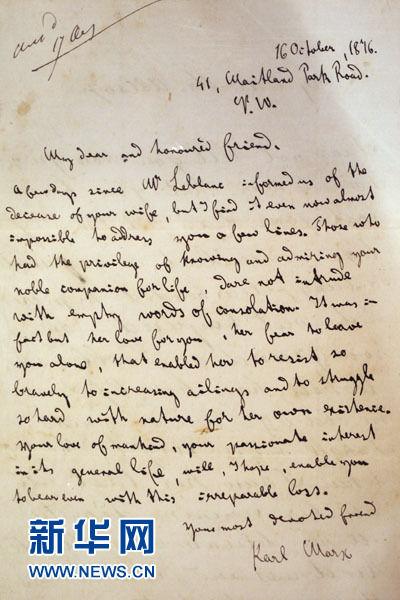 16 October, 1876.
41, Maitland Park Road.
N. W.
My dear and honoured friend.
A few days since Mr Leblanc informed us of the
decease of your wife, but I find it even now almost
impossible to address you a few lines. Those who
had the privilege of knowing and admiring your
noble companion for life, dare not intrude
with empty words of consolation. It was in
fact but her love for you, her fear to leave
you alone, that enabled her to resist so
bravely to increasing ailings and to struggle
so hard with nature for her own existence.
Your love of mankind, your passionate interest
in its general life, will, I hope, enable you
to bear even with this irreparable loss.
Your most devoted friend
Karl Marx
新华网
WWW.NEWS.CN